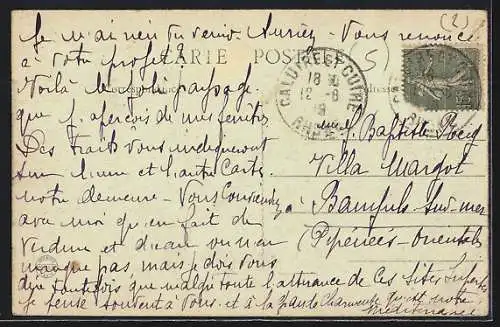 Je m'aime du vernis Aurien - Vous renoncé
à votre profet?
CARTE POSTALE
Voilà le joli paysage
Correspondance
que j'aperçois de mes fenêtres
Des traits vous indiqueront
sur l'une et l'autre Carte
notre demeure - Vous Conviendrez
avec moi qu'en fait de
verdure et d'eau on n'en
manque pas mais je dois vous
dire toutefois que malgré toute l'attirance de ces sites superbes
je pense souvent à Vous et à la grande Charmeuse qu'est notre
Méditerranée
(2)
(5)
CALUIRE-ET-CUIRE
18
12 -8
19
RHÔNE
J. Baptiste
Villa Margot
à Banyuls-sur-mer
(Pyrénées-Orientales